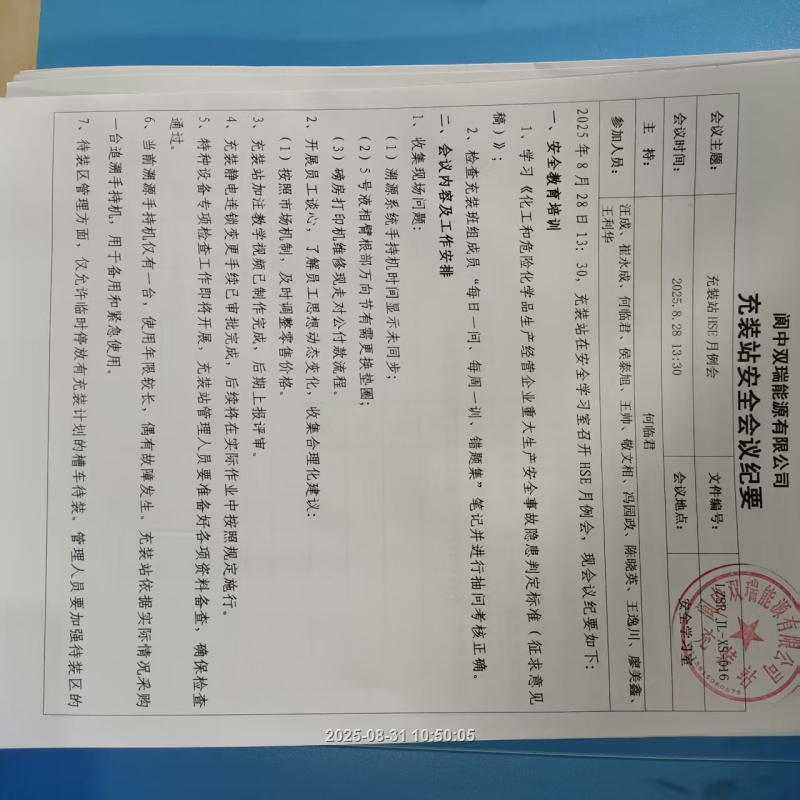 阆中双瑞能源有限公司
充装站安全会议纪要
会议主题： 充装站 HSE 月例会 文件编号： LZSR/JL-XS-016
会议时间： 2025.8.28 13:30 会议地点： 安全学习室
主 持： 何临君
参加人员： 汪成、崔永成、何临君、侯泰旭、王帅、敬文相、冯园政、陈晓英、王逸川、廖美鑫、
王利华
2025 年 8 月 28 日 13：30，充装站在安全学习室召开 HSE 月例会，现会议纪要如下：
一、安全教育培训
1、学习《化工和危险化学品生产经营企业重大生产安全事故隐患判定标准（征求意见
稿）》；
2、检查充装班组成员“每日一问、每周一训、错题集”笔记并进行抽问考核正确。
二、会议内容及工作安排
1、收集现场问题：
（1）溯源系统手持机时间显示未同步；
（2）5 号液相臂根部万向节有需更换垫圈；
（3）磅房打印机维修现走对公付款流程。
2、开展员工谈心，了解员工思想动态变化，收集合理化建议：
（1）按照市场机制，及时调整零售价格。
3、充装站加注教学视频已制作完成，后期上报评审。
4、充装静电连锁变更手续已审批完成，后续将在实际作业中按照规定施行。
5、特种设备专项检查工作即将开展，充装站管理人员要准备好各项资料备查，确保检查
通过。
6、当前溯源手持机仅有一台，使用年限较长，偶有故障发生。充装站依据实际情况采购
一台追溯手持机，用于备用和紧急使用。
7、待装区管理方面，仅允许临时停放有充装计划的槽车待装。管理人员要加强待装区的
2025-08-31 10:50:05